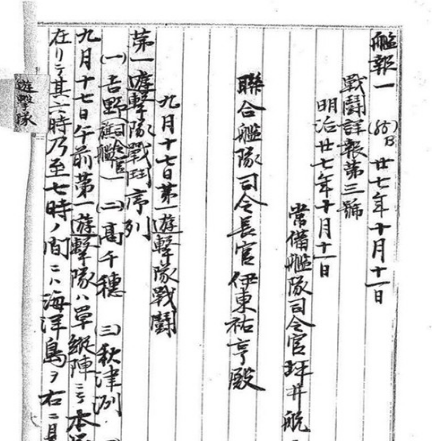 艦報一 廿七年十月十一日
戰鬪詳報第三號
明治廿七年十月十一日
常備艦隊司令官坪井航
聯合艦隊司令長官伊東祐亨殿
九月十七日第一遊擊隊戰鬪
第一遊擊隊戰鬪序列
(一)吉野 司令官旗艦 (二)高千穗 (三)秋津洲
九月十七日午前第一遊擊隊ハ單縱陣ニテ本
在リテ其六時乃至七時ノ間ニハ海洋島ヲ右ニ
遊擊隊